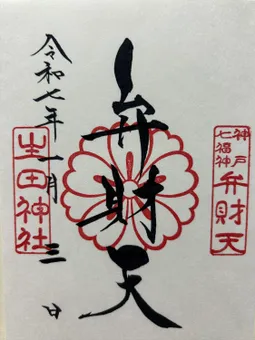 神戸
七福神
弁財天
弁財天
令和七年一月三日
生田神社